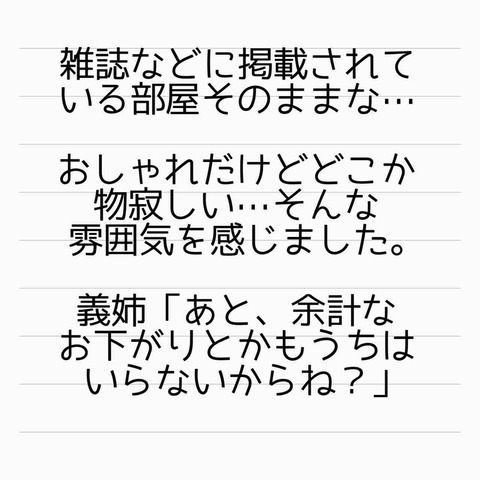 雑誌などに掲載されて
いる部屋そのままな…
おしゃれだけどどこか
物寂しい…そんな
雰囲気を感じました。
義姉「あと、余計な
お下がりとかもうちは
いらないからね？」